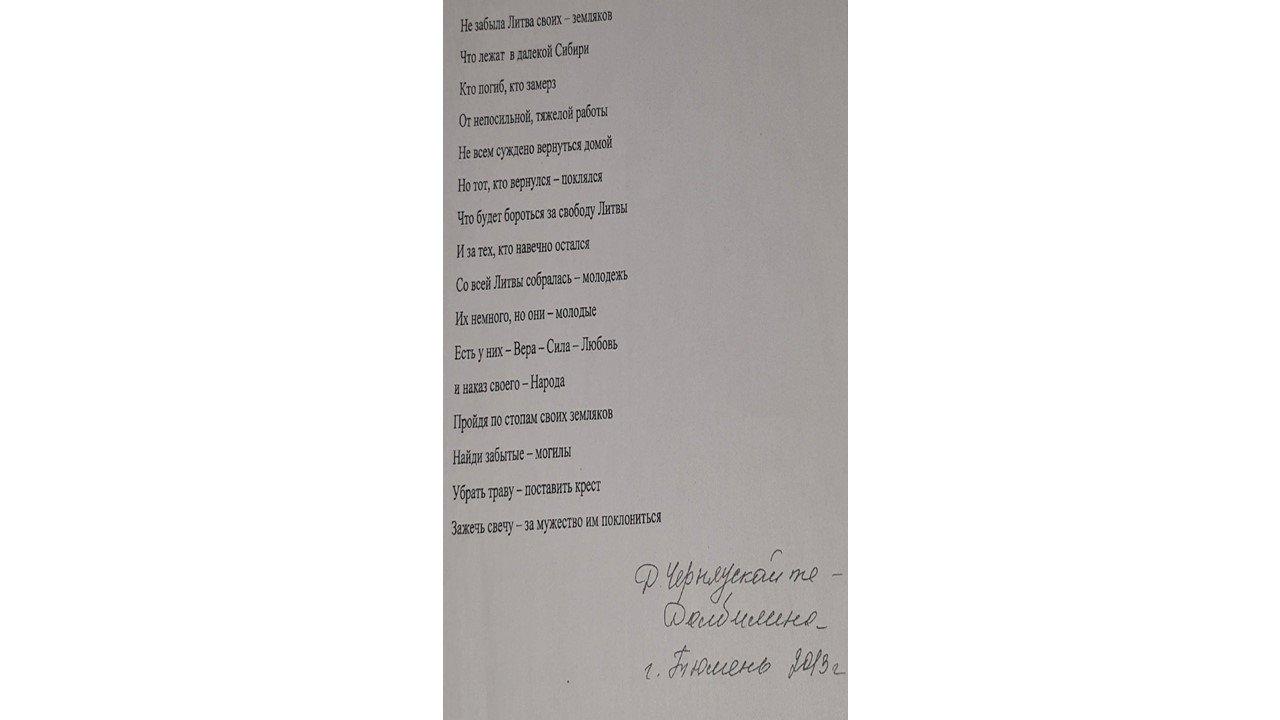 Не забыла Литва своих – земляков
Что лежат в далекой Сибири
Кто погиб, кто замерз
От непосильной, тяжелой работы
Не всем суждено вернуться домой
Но тот, кто вернулся – поклялся
Что будет бороться за свободу Литвы
И за тех, кто навечно остался
Со всей Литвы собралась – молодежь
Их немного, но они – молодые
Есть у них – Вера – Сила – Любовь
и наказ своего – Народа
Пройдя по стопам своих земляков
Найди забытые – могилы
Убрать траву – поставить крест
Зажечь свечу – за мужество им поклониться
Д Черняускайте –
Далбилина
г. Тюмень 2013 г